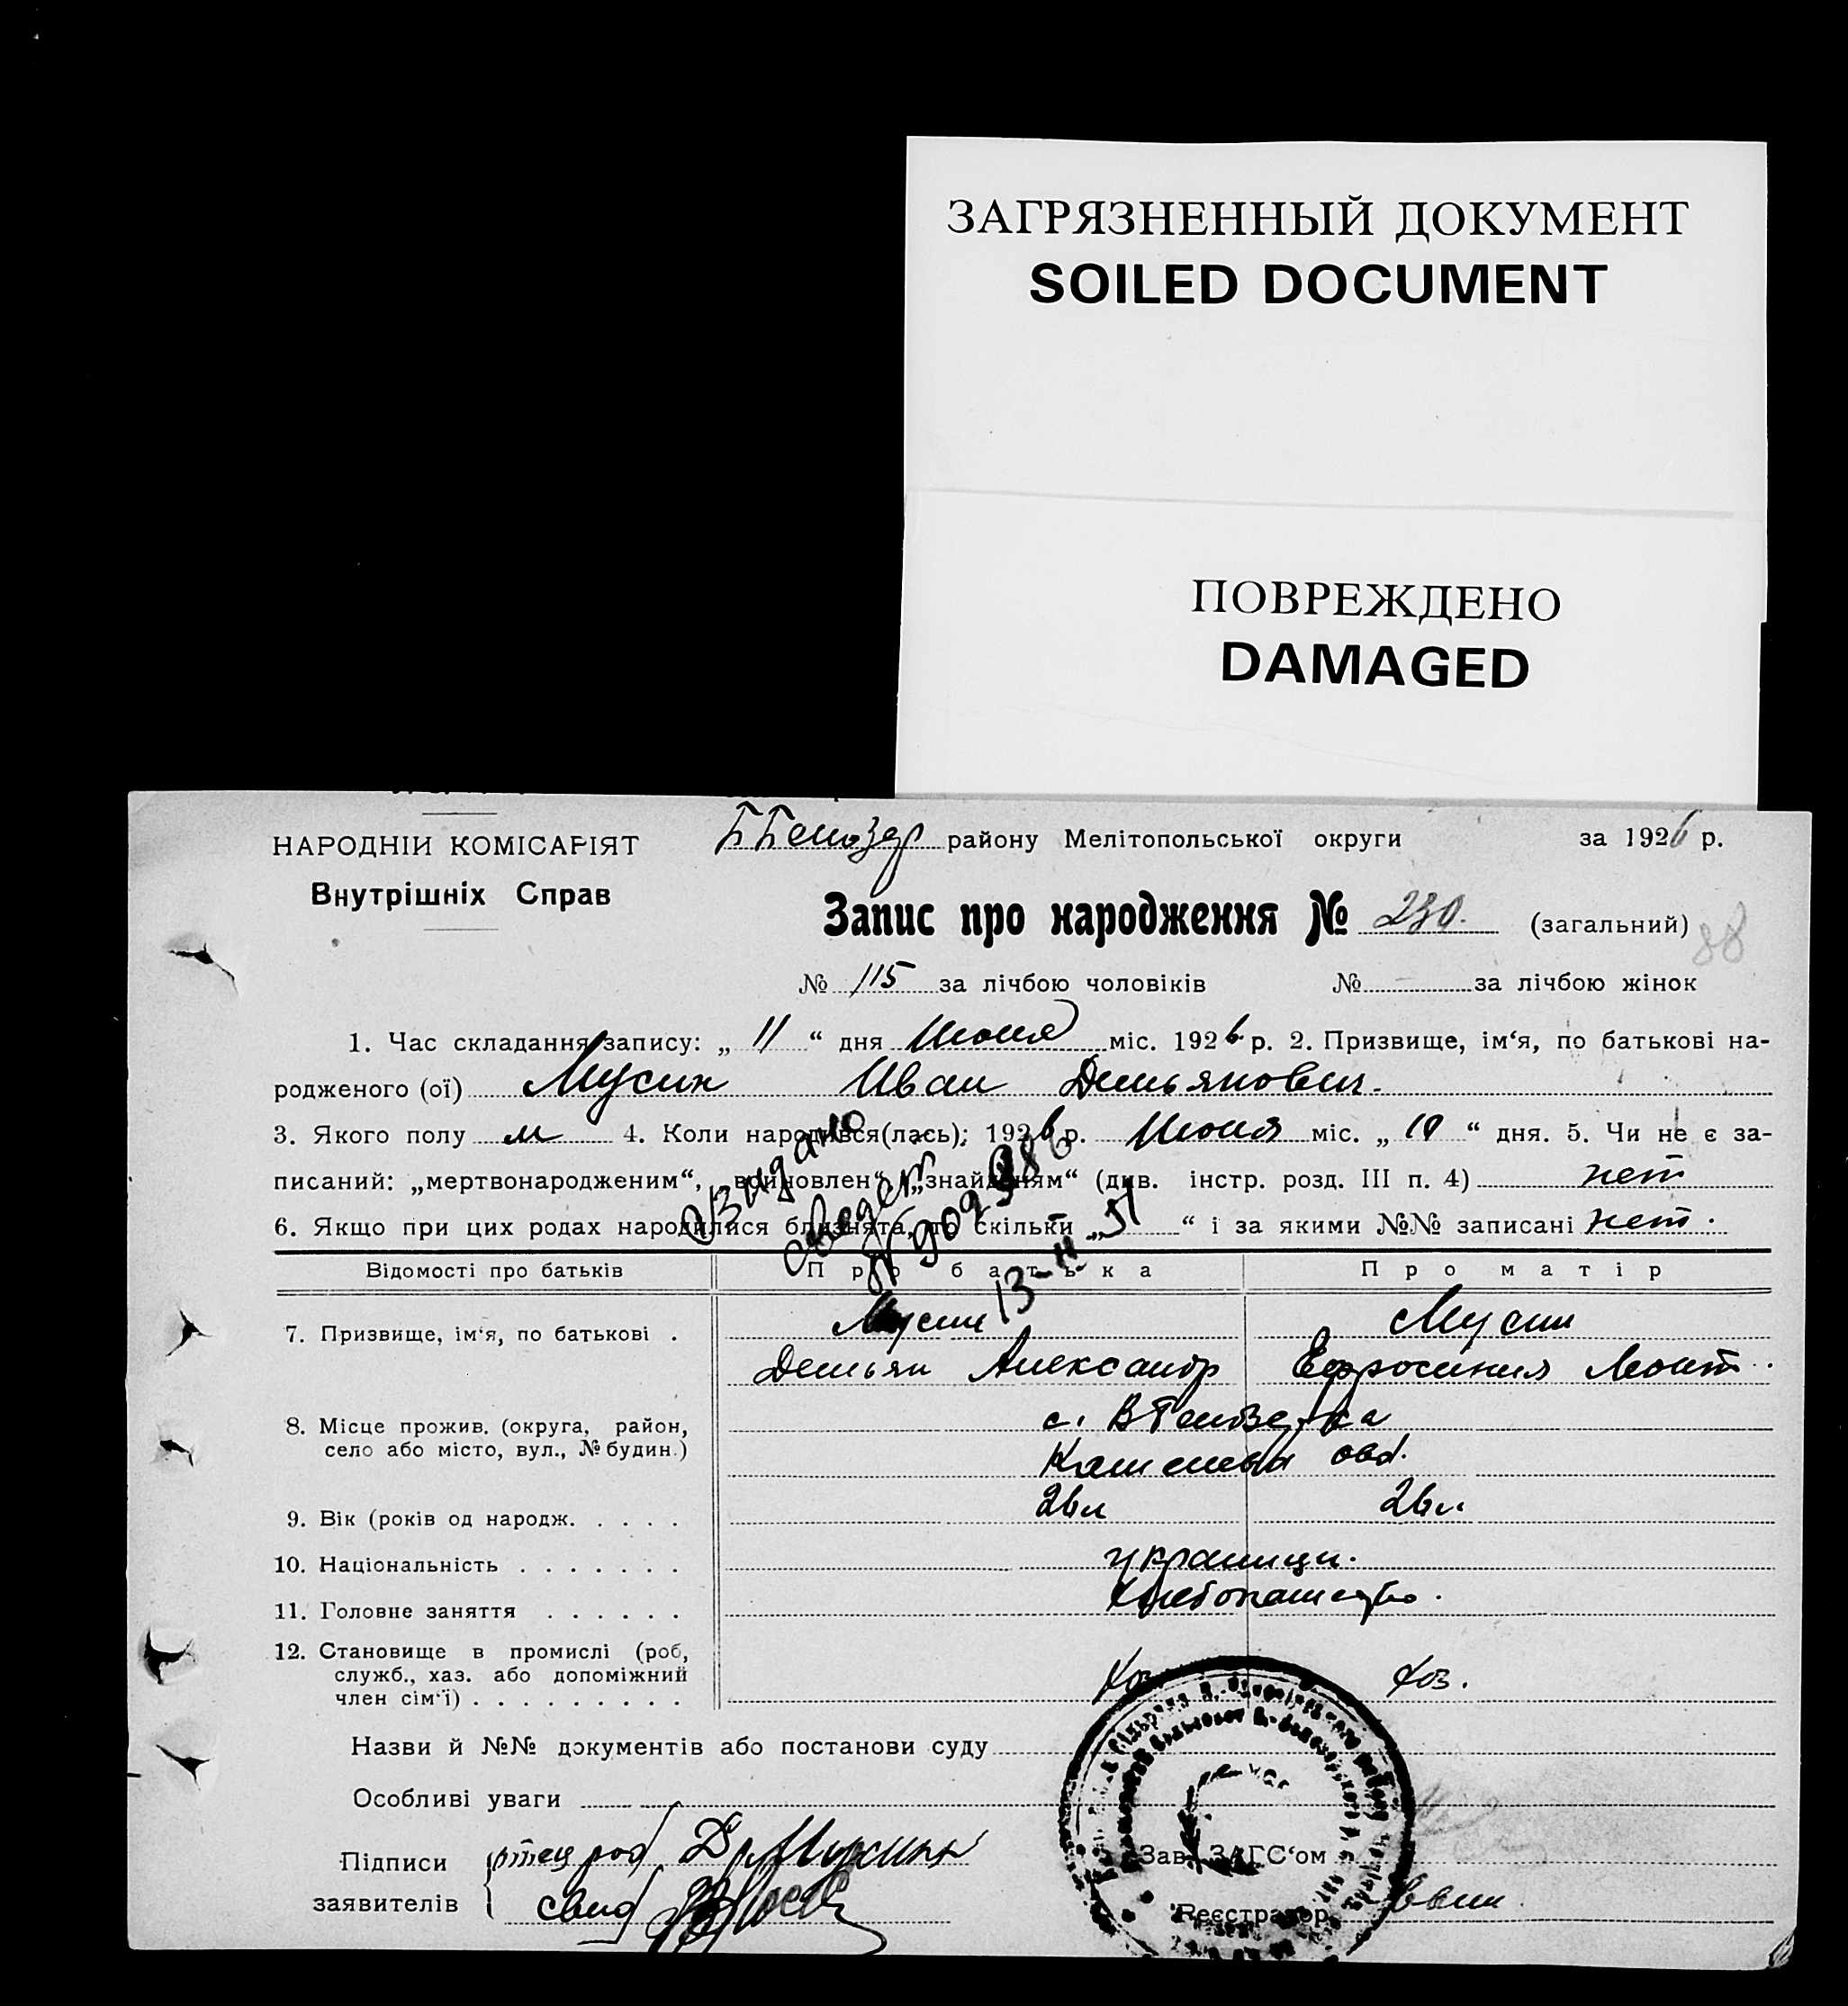 ЗАГРЯЗНЕННЫЙ ДОКУМЕНТ
SOILED DOCUMENT
ПОВРЕЖДЕНО
DAMAGED
НАРОДНІЙ КОМІСАРІЯТ
Внутрішніх Справ
району Мелітопольської округи за 1926 р.
Запис про народження № 230. (загальний) 88
№ 115 за лічбою чоловіків № - за лічбою жінок
1. Час складання запису: „ 11 “ дня Июня міс. 1926 р. 2. Призвище, ім‘я, по батькові на-
родженого (ої) Мусин Иван Демьянович.
3. Якого полу м 4. Коли народився(лась); 1926 р. Июня міс. „ 10 “ дня. 5. Чи не є за-
писаний: „мертвонародженим“, „знайденям“ (див. інстр. розд. III п. 4) нет
6. Якщо при цих родах народилися близнята, то скільки „ “ і за якими №№ записані нет.
Выдано
свидет
13-II-51
Відомості про батьків Про батька Про матір
7. Призвище, ім‘я, по батькові . Мусин Мусин
Демьян Александр Ефросиния Леонт.
8. Місце прожив. (округа, район,
село або місто, вул., № будин.)
с.
9. Вік (років од народж. . . . . 26 л 26 л.
10. Національність . . . . . . . украинци.
11. Головне заняття . . . . . . Хлебопашество.
12. Становище в промислі (роб,
служб., хаз. або допоміжний
член сім‘ї) . . . . . . . . . Хоз. Хоз.
Назви й №№ документів або постанови суду
Особливі уваги
Підписи
заявителів
отец Мусин
свид
Зав. ЗАГС‘ом
Реєстратор